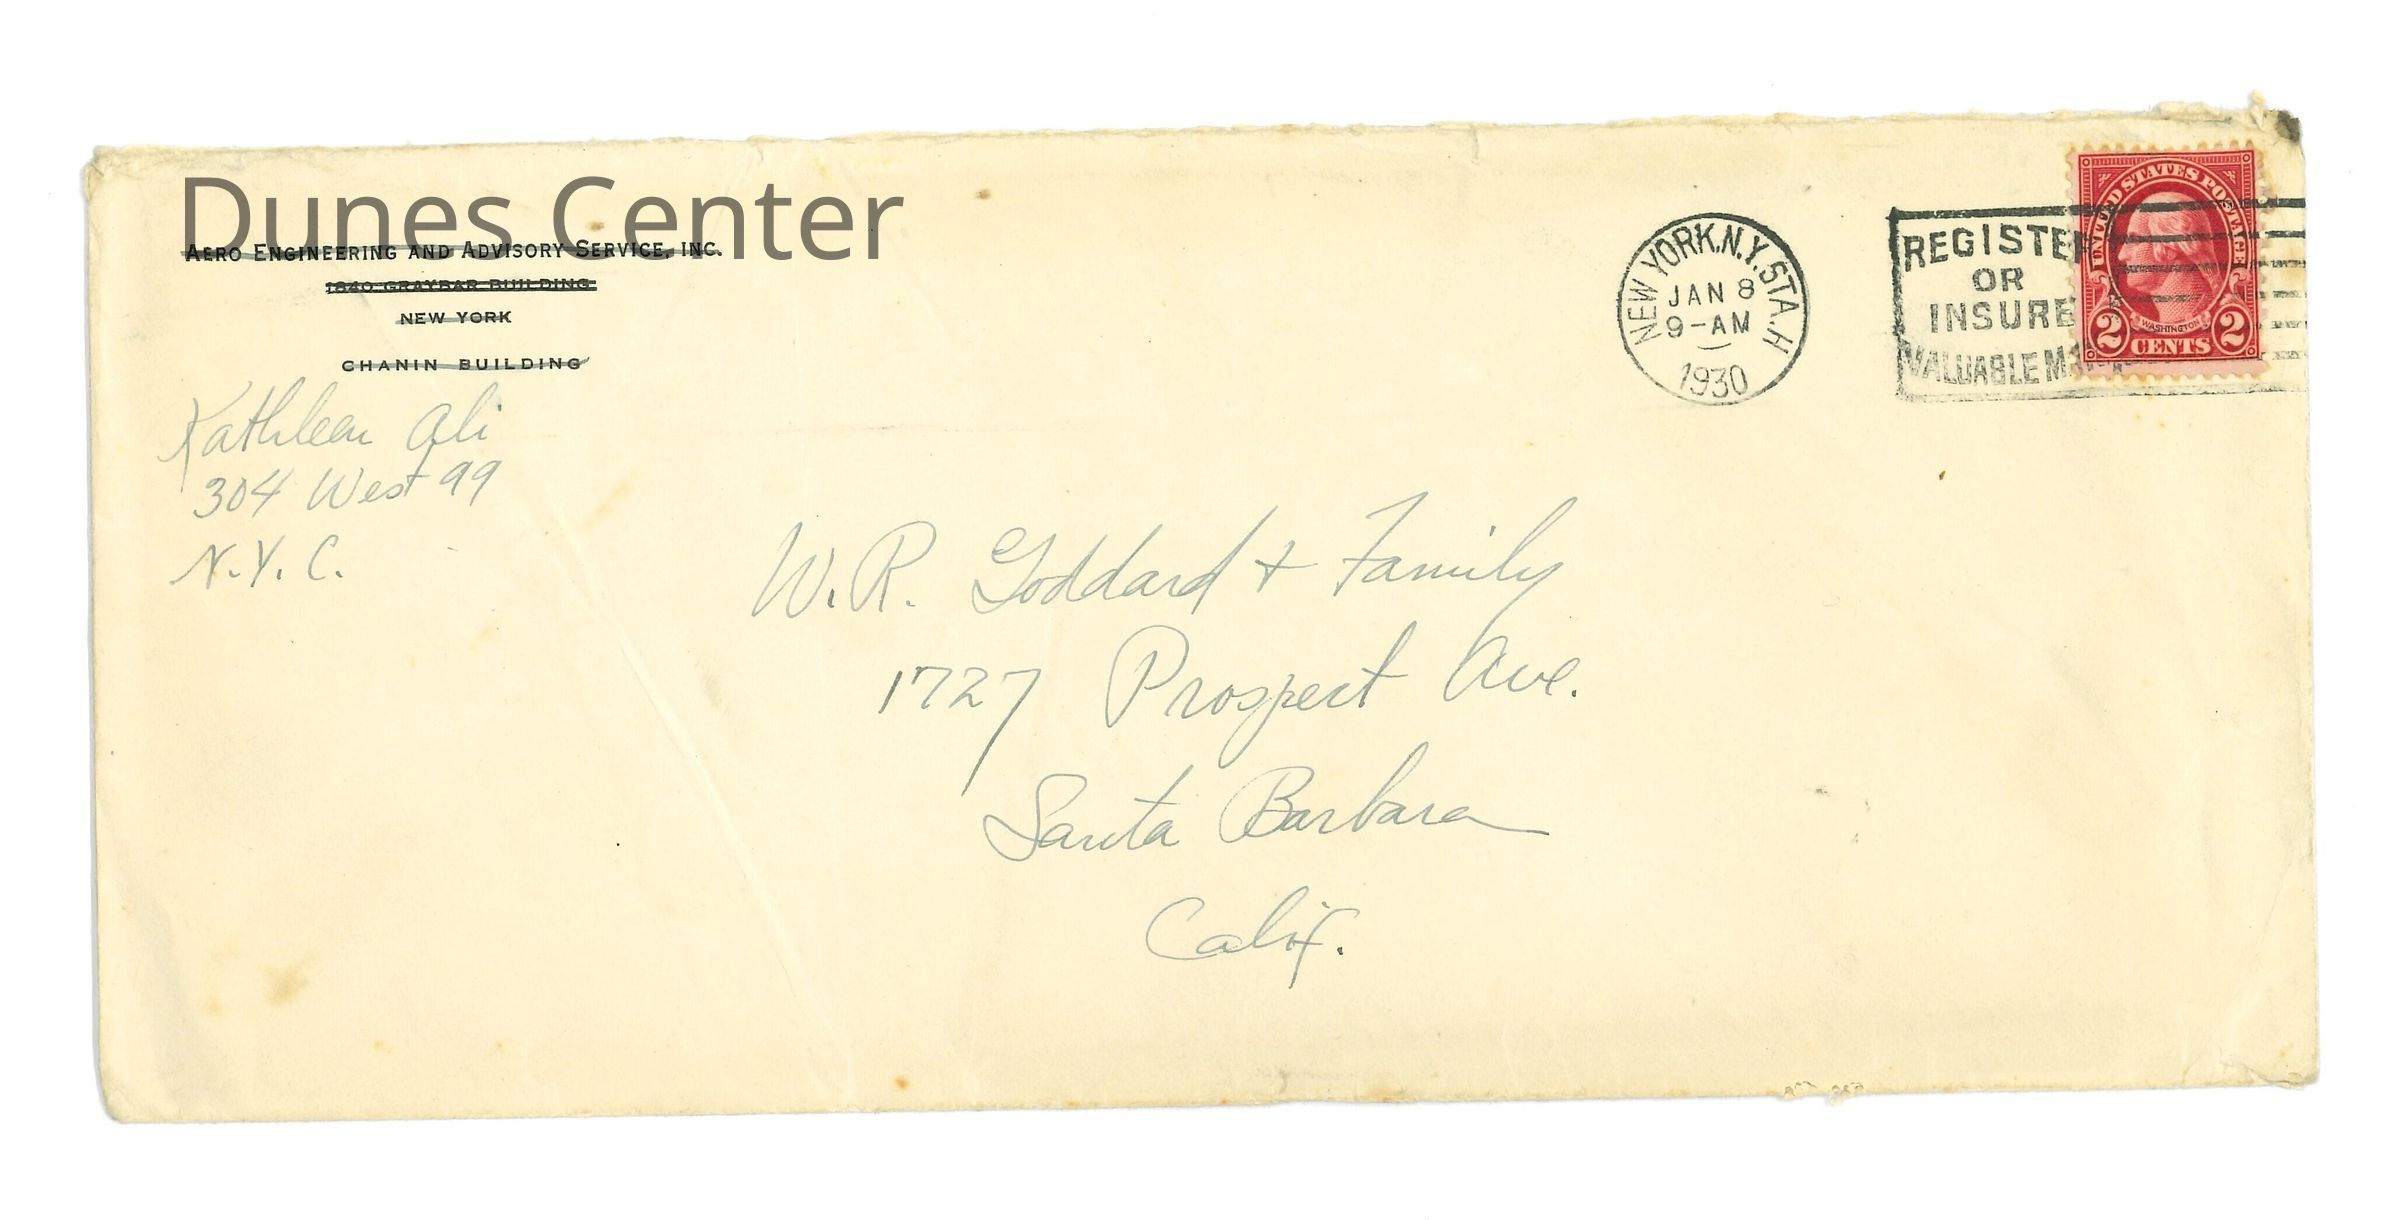 Dunes Center
AERO ENGINEERING AND ADVISORY SERVICE, INC.
1840 GRAYBAR BUILDING
NEW YORK
CHANIN BUILDING
Kathleen Ali
304 West 99
N.Y.C.
NEW YORK, N.Y. STA. H
JAN 8
9-AM
1930
REGISTER
OR
INSURE
VALUABLE MA
UNITED STATES POSTAGE
WASHINGTON
2 CENTS 2
W. R. Goddard + Family
1727 Prospect Ave.
Santa Barbara
Calif.